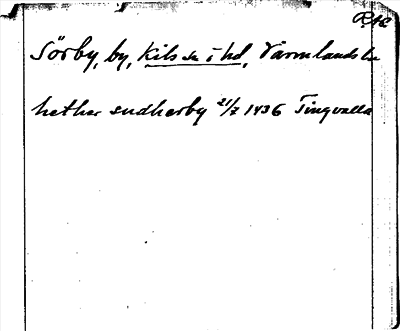 RAC
Sörby, by, Kils sn i hd, Värmlands län
hether sudherby 21/2 1436 Tingvalla